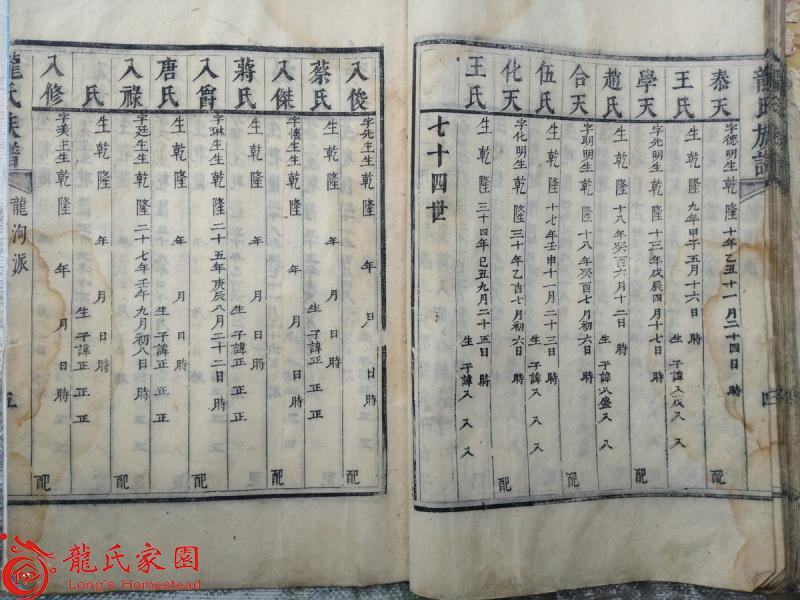 龍氏族譜
四
泰天 字德明生 乾隆十年乙丑十一月二十四日 時 配
王氏 生 乾隆九年甲子五月十六日 時 生子諱入成入入
學天 字光明生 乾隆十三年戊辰四月十七日 時 配
趙氏 生 乾隆十八年癸酉六月十二日 時 生子諱入盛入入
合天 字明生 乾隆十八年癸酉七月初六日 時 配
伍氏 生 乾隆十七年壬申十一月二十三日 時 生子諱入入入
化天 字化明生 乾隆三十年乙酉七月初六日 時 配
王氏 生 乾隆三十四年己丑九月二十五日 時 生子諱入入入
七十四世
入俊 字先主生 乾隆 年 月 日 時 配
蔡氏 生 乾隆 年 月 日 時 生子諱正正正
入傑 字懷生生 乾隆 年 月 日 時 配
蔣氏 生 乾隆 年 月 日 時 生子諱正正正
入爵 字琳生生 乾隆二十五年庚辰八月二十二日 時 配
唐氏 生 乾隆 年 月 日 時 生子諱正正正
入祿 字廷生生 乾隆二十七年壬午九月初八日 時 配
氏 生 乾隆 年 月 日 時 生子諱正正正
入修 字美主生 乾隆 年 月 日 時 配
龍氏族譜
龍泃派
五
龍氏家園
Long's Homestead